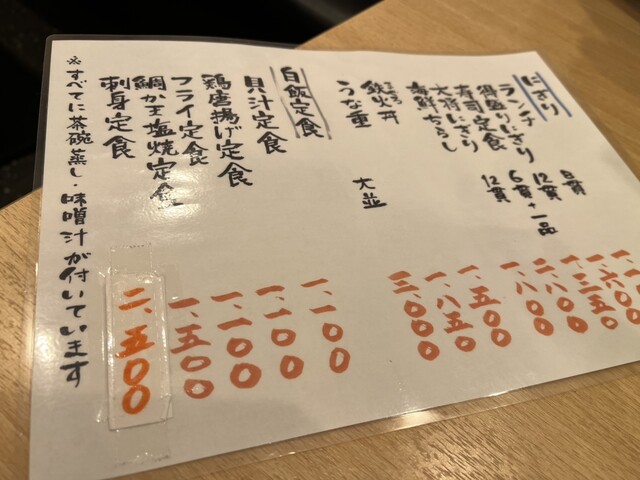 にぎり
ランチにぎり 8貫
得盛りにぎり 12貫 一、六〇〇
寿司定食 6貫+一品 一、三五〇
大将にぎり 12貫 二、八〇〇
海鮮ちらし 一、八〇〇
鉄火丼 一、五〇〇
うな重 並 一、八五〇
大 三、〇〇〇
白飯定食
貝汁定食 一、一〇〇
鶏唐揚げ定食 一、一〇〇
フライ定食 一、一〇〇
鯛かま塩焼定食 一、五〇〇
刺身定食 二、五〇〇
※すべてに茶碗蒸し・味噌汁が付いています